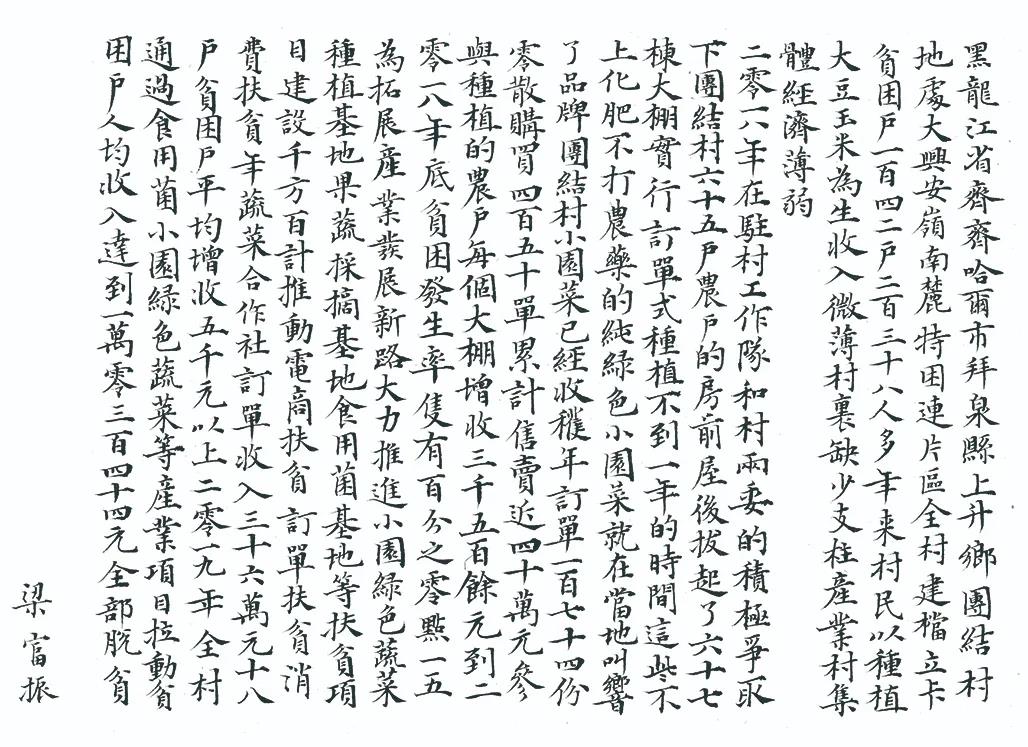 黑龍江省齊齊哈爾市拜泉縣上升鄉團結村
地處大興安嶺南麓特困連片區全村建檔立卡
貧困戶一百四二戶二百三十八人多年来村民以種植
大豆玉米為生收入微薄村裏缺少支柱產業村集
體經濟薄弱
二零一六年在駐村工作隊和村兩委的積極爭取
下團結村六十五戶農戶的房前屋後拔起了六十七
棟大棚實行訂單式種植不到一年的時間這些不
上化肥不打農藥的純綠色小園菜就在當地叫響
了品牌團結村小園菜已經收穫年訂單一百七十四份
零散購買四百五十單累計售賣近四十萬元參
與種植的農戶每個大棚增收三千五百餘元到二
零一八年底貧困發生率隻有百分之零點一五
為拓展產業發展新路大力推進小園綠色蔬菜
種植基地果蔬採摘基地食用菌基地等扶貧項
目建設千方百計推動電商扶貧訂單扶貧消
費扶貧年蔬菜合作社訂單收入三十六萬元十八
戶貧困戶平均增收五千元以上二零一九年全村
通過食用菌小園綠色蔬菜等產業項目拉動貧
困戶人均收入達到一萬零三百四十四元全部脱貧
梁富振